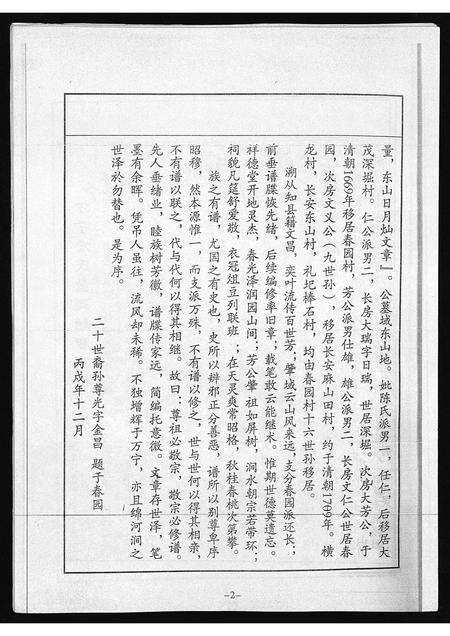 量，东山日月灿文章』。公墓城东山地。妣陈氏派男一，任仁，后移居大
茂深堀村。仁公派男二，长房大瑞字日瑞，世居深堀。次房大芳公，于
清朝1669年移居春园村，芳公派男仕雄，雄公派男二，长房文仁公世居春
园，次房文义公（九世孙），移居长安麻山田村，约于清朝1709年。横
龙村，长安东山村，礼圮棒石村，均由春园村十六世孙移居。
溯从知县籍文昌，奕叶流传百世芳；肇城云山风来远，支分春园派还长；
前垂谱牒恢先绪，后续编修率旧章，载笔敢云能继术。惟期世德莫遗忘。
祥德堂开地灵杰，春光泽润园山间；芳公肇祖如屏树，涧水朝宗若带环；
祠貌凡筵舒爱敬，衣冠俎豆列联班，在天灵爽常昭格，秋桂春桃次第攀。
族之有谱，尤国之有史也，史所以辨邪正分善恶，谱所以别尊卑序
昭穆，然本源惟一，而支派万殊，不有谱以修之，世与世何以得其相亲，
不有谱以联之，代与代何以得其相继。故曰：尊祖必敬宗，敬宗必修谱。
先人垂绪业，睦族树芳徽，谱牒传家远，简编托意微。文章存世泽，笔
墨有余晖。凭吊人虽往，流风却未稀。不独增辉于万宁，亦且绵河涧之
世泽於勿替也。是为序。
二十世裔孙尊光字金昌 题于春园
丙戌年十二月
-2-